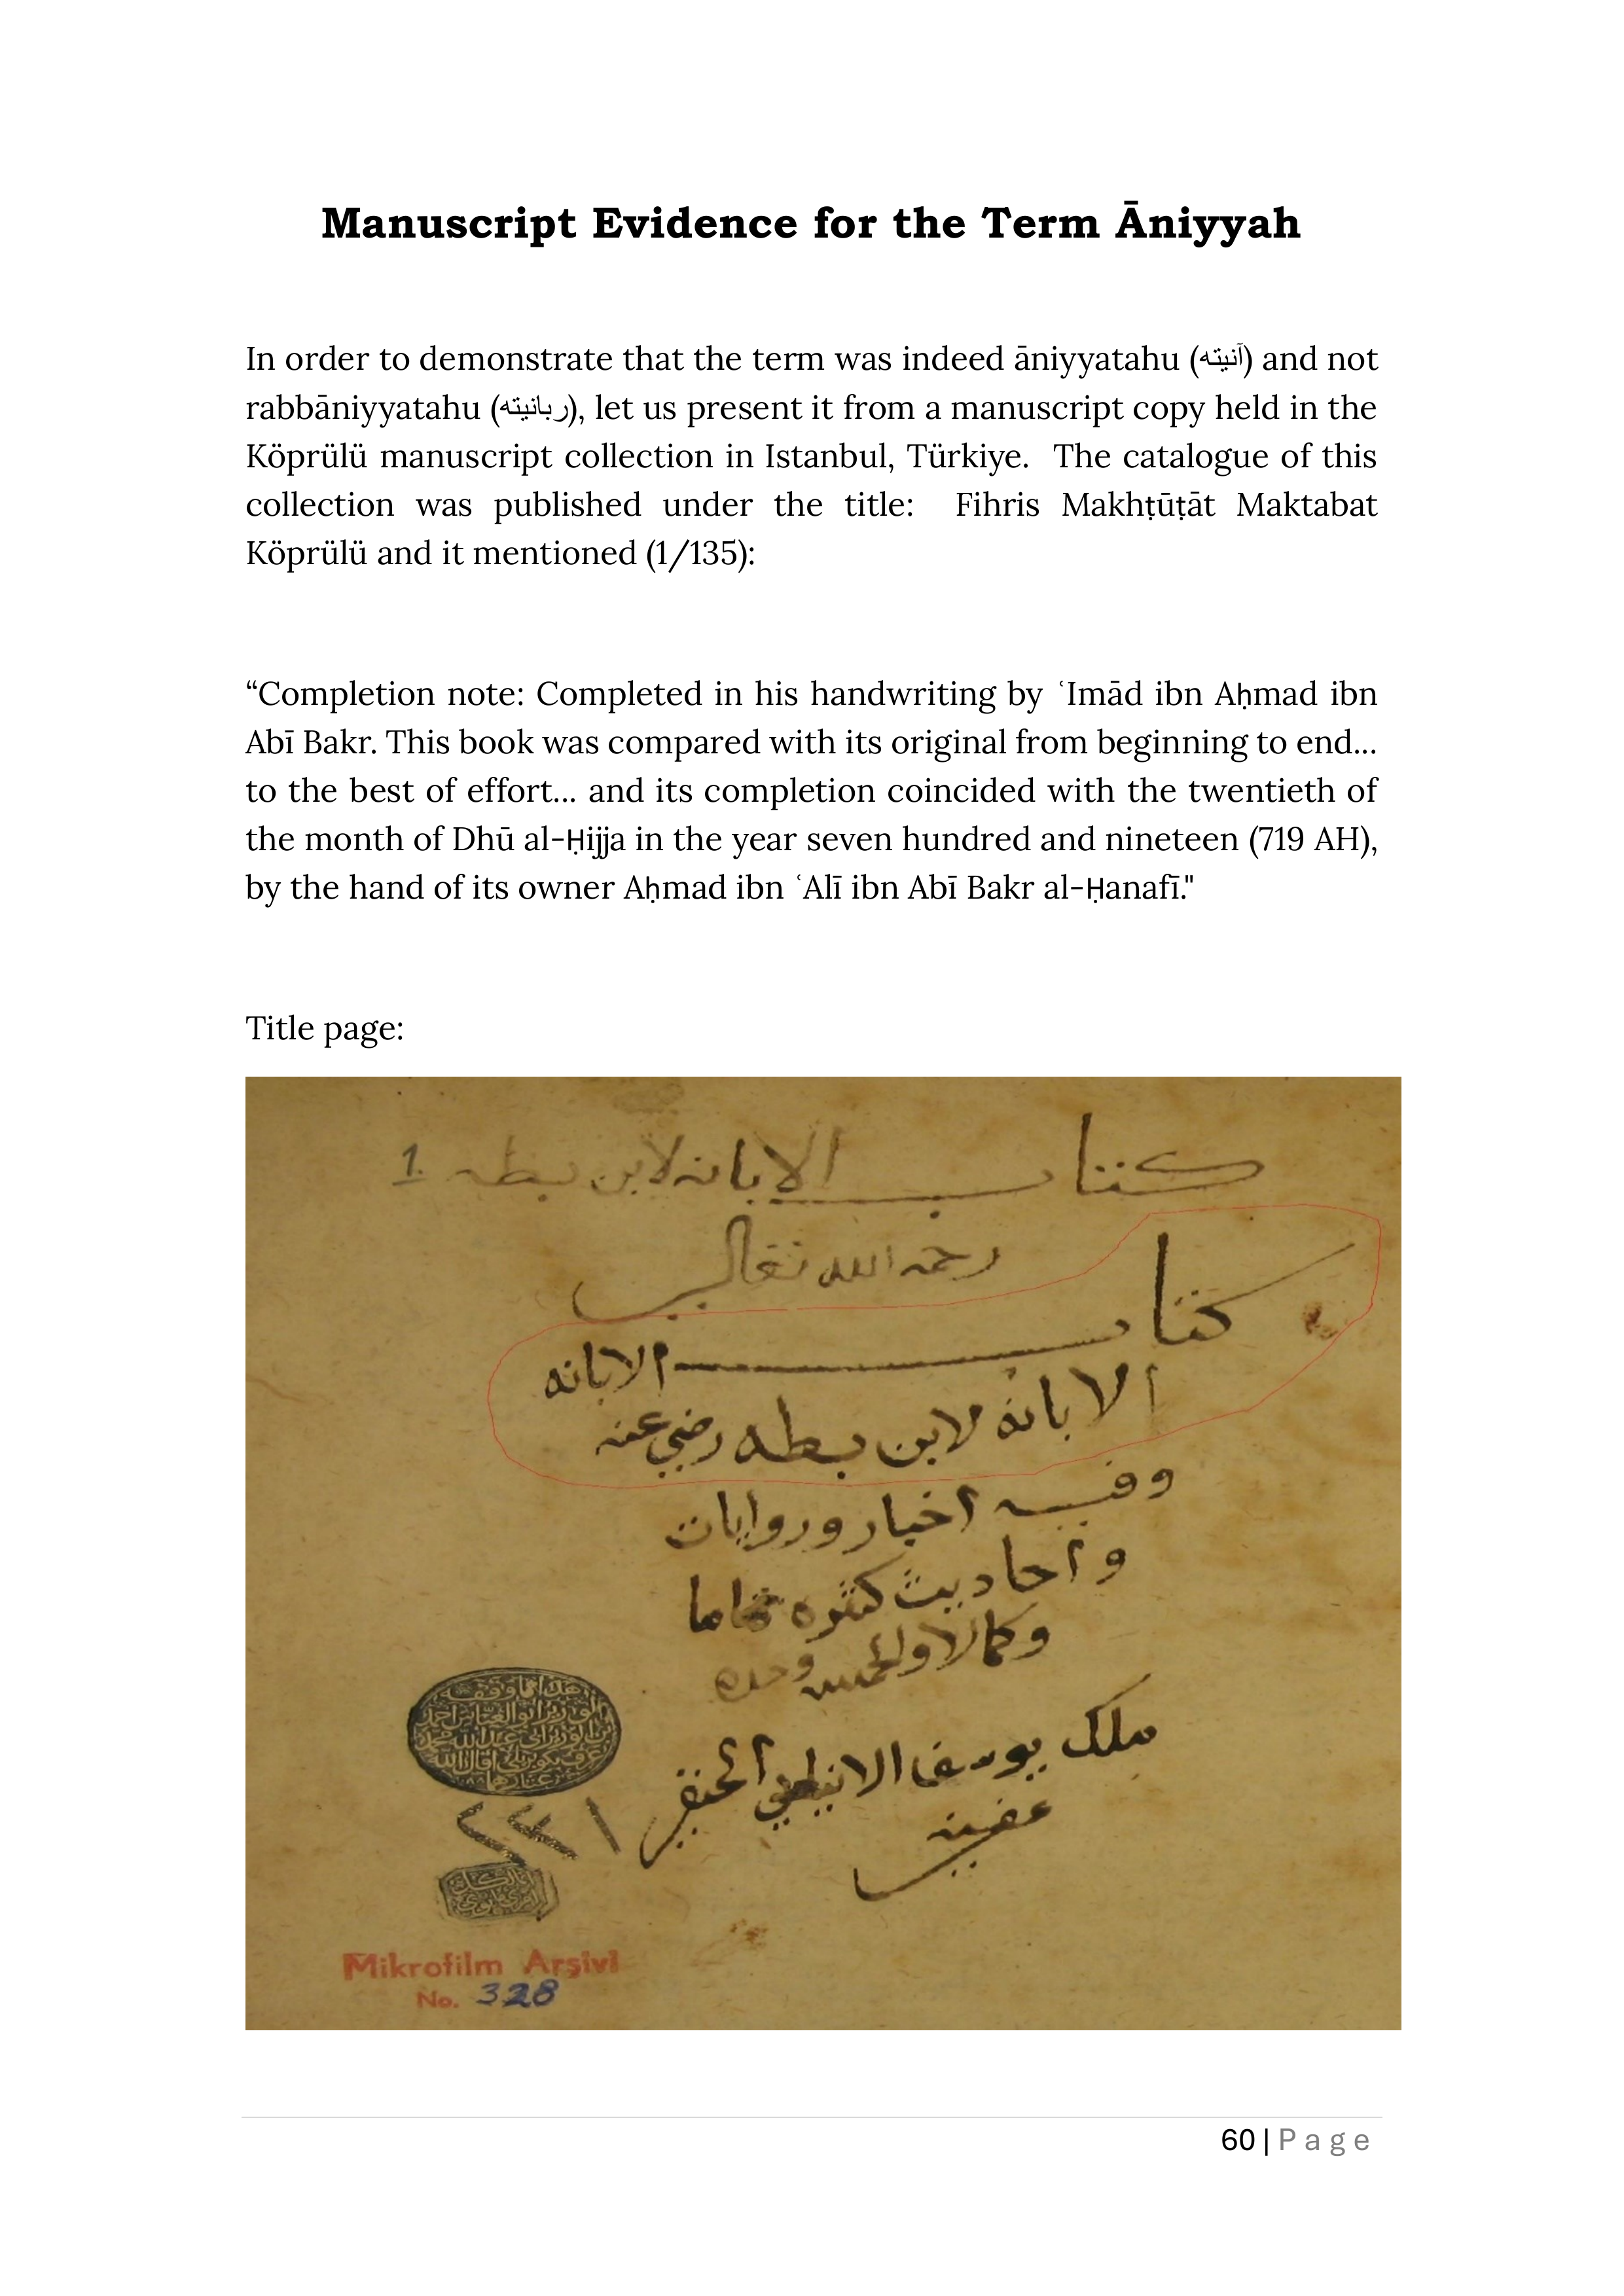 Manuscript Evidence for the Term Āniyyah
In order to demonstrate that the term was indeed āniyyatahu (آنيته) and not
rabbāniyyatahu (ربانيته), let us present it from a manuscript copy held in the
Köprülü manuscript collection in Istanbul, Türkiye.  The catalogue of this
collection was published under the title:  Fihris Makhṭūṭāt Maktabat
Köprülü and it mentioned (1/135):
“Completion note: Completed in his handwriting by ʿImād ibn Aḥmad ibn
Abī Bakr. This book was compared with its original from beginning to end...
to the best of effort... and its completion coincided with the twentieth of
the month of Dhū al-Ḥijja in the year seven hundred and nineteen (719 AH),
by the hand of its owner Aḥmad ibn ʿAlī ibn Abī Bakr al-Ḥanafī."
Title page:
كتاب الابانه لابن بطه 1.
رحمه الله تعالى
كتاب الابانه
الابانة لابن بطه رضي عنه
وفيه اخبار وروايات
واحاديث كثره تماما
وكمالا
ملك يوسف
٢٣١
Mikrofilm Arşivi
No. 328
60 | Page